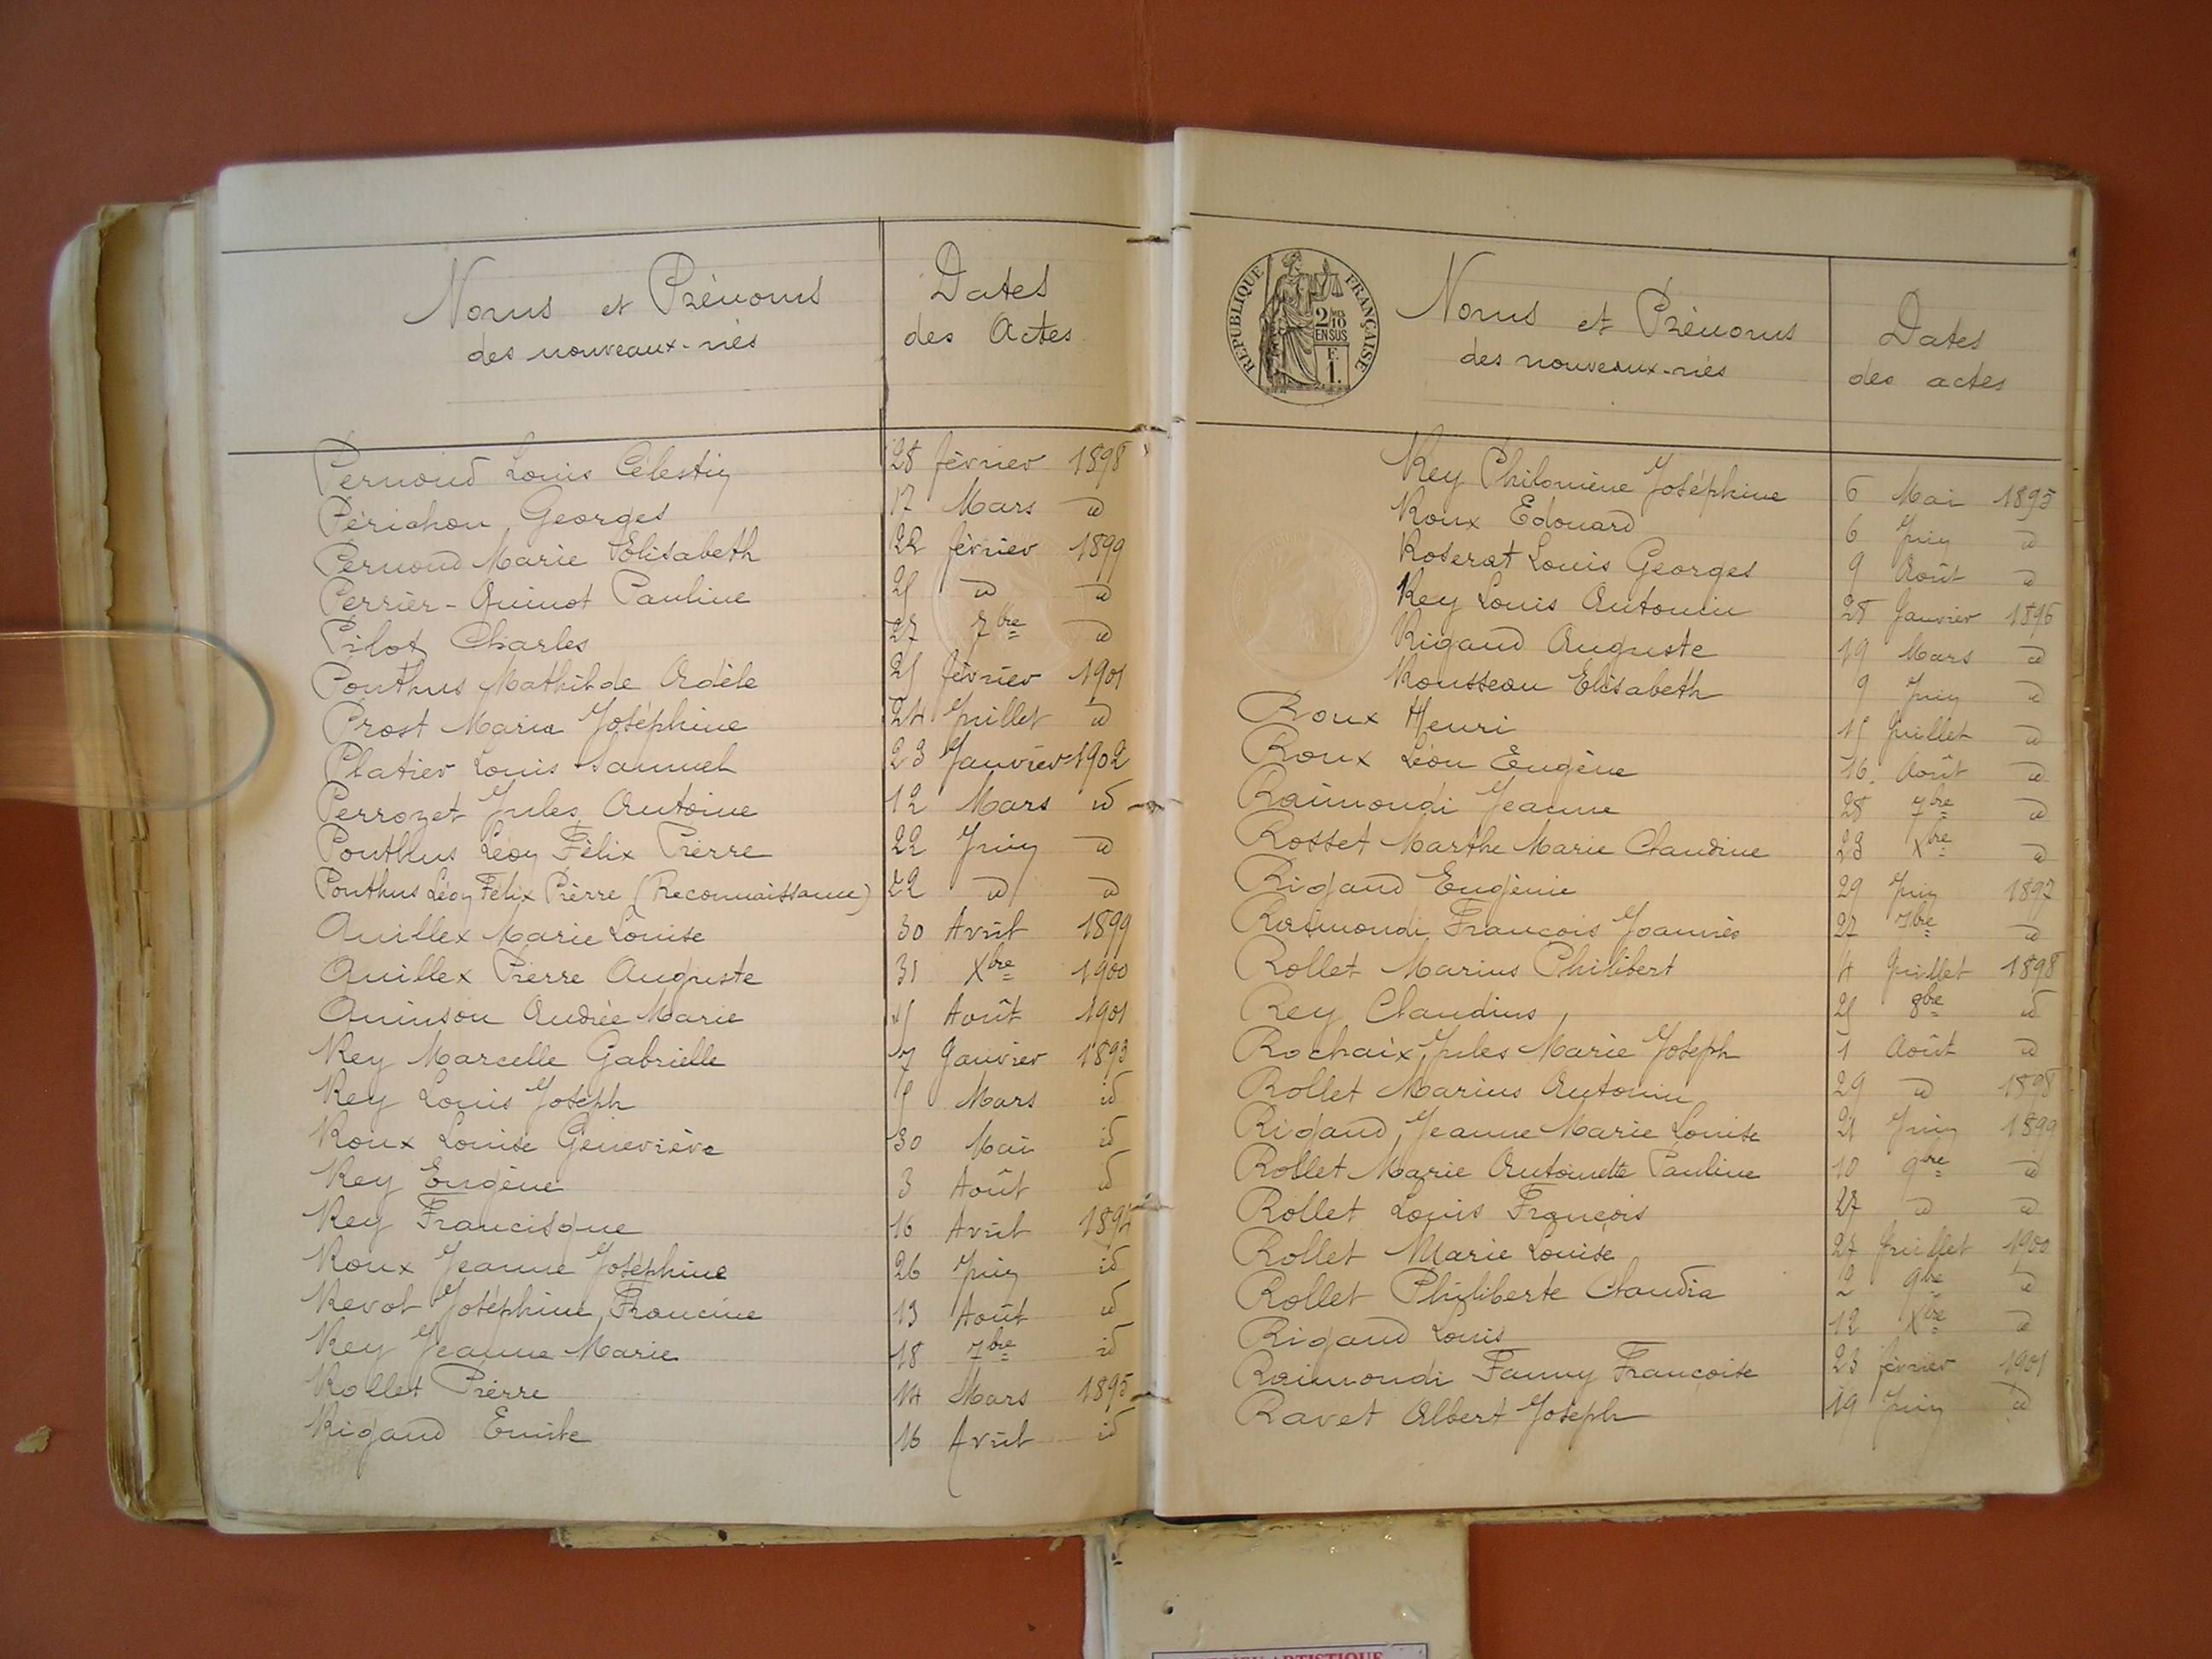 Noms et Prénoms
des nouveaux-nés
Dates
des Actes
Pernoud Louis Célestin 28 février 1898
Périchon Georges 17 Mars d
Pernoud Marie Elisabeth 22 février 1899
Perrier-Quinot Pauline 25 d d
Pilot Charles 27 7bre d
Ponthus Mathilde Adèle 25 février 1901
Prost Maria Joséphine 24 Juillet d
Platier Louis Samuel 23 Janvier 1902
Perrozet Jules Antoine 12 Mars id
Ponthus Léon Félix Pierre 22 Juin d
Ponthus Léon Félix Pierre (Reconnaissance) 22 d d
Quillex Marie Louise 30 Avril 1899
Quillex Pierre Auguste 31 Xbre 1900
Quinson Andrée Marie 15 Août 1901
Rey Marcelle Gabrielle 17 Janvier 1893
Rey Louis Joseph Mars id
Roux Louise Geneviève 30 Mai id
Rey Eugène 3 Août id
Rey Francisque 16 Avril 1894
Roux Jeanne Joséphine 26 Juin id
Revol Joséphine Francine 13 Août id
Rey Jeanne Marie 18 7bre id
Rollet Pierre 14 Mars 1895
Rigaud Emile 16 Avril id
RÉPUBLIQUE FRANÇAISE
2/10
EN SUS
F.
1.
Noms et Prénoms
des nouveaux-nés
Dates
des actes
Rey Philomène Joséphine 6 Mai 1895
Roux Edouard 6 Juin d
Roserat Louis Georges 9 Août d
Rey Louis Antonin 28 Janvier 1896
Rigaud Auguste 19 Mars d
Rousseau Elisabeth 9 Juin d
Roux Henri 15 Juillet d
Roux Léon Eugène 16 Août d
Raimondi Jeanne 28 7bre d
Rosset Marthe Marie Claudine 23 Xbre d
Rigaud Eugénie 29 Juin 1897
Raimondi François Joannès 27 7bre d
Rollet Marius Philibert 4 Juillet 1898
Rey Claudius 25 8bre id
Rochaix Jules Marie Joseph 1 Août d
Rollet Marius Antonin 29 d 1898
Rigaud Jeanne Marie Louise 21 Juin 1899
Rollet Marie Antoinette Pauline 10 9bre d
Rollet Louis François 27 d d
Rollet Marie Louise 27 Juillet 1900
Rollet Philiberte Claudia 2 9bre d
Rigaud Louis 12 Xbre d
Raimondi Fanny Françoise 23 février 1901
Ravet Albert Joseph 19 Juin d
ARTISTIQUE